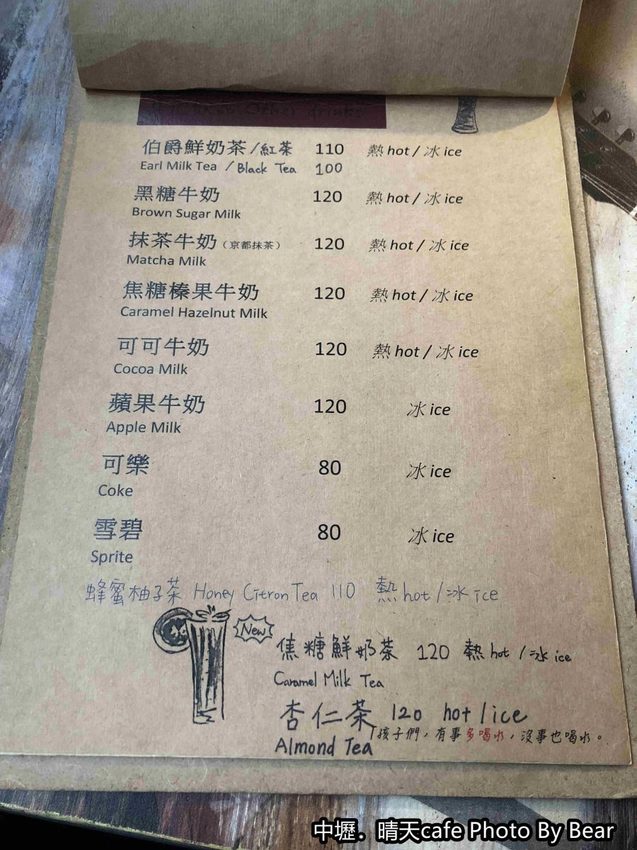 Other drinks
伯爵鮮奶茶/紅茶 110 熱 hot / 冰 ice
Earl Milk Tea / Black Tea 100
黑糖牛奶 120 熱 hot / 冰 ice
Brown Sugar Milk
抹茶牛奶(京都抹茶) 120 熱 hot / 冰 ice
Matcha Milk
焦糖榛果牛奶 120 熱 hot / 冰 ice
Caramel Hazelnut Milk
可可牛奶 120 熱 hot / 冰 ice
Cocoa Milk
蘋果牛奶 120 冰 ice
Apple Milk
可樂 80 冰 ice
Coke
雪碧 80 冰 ice
Sprite
蜂蜜柚子茶 Honey Citron Tea 110 熱 hot / 冰 ice
New
焦糖鮮奶茶 120 熱 hot / 冰 ice
Caramel Milk Tea
杏仁茶 120 hot / ice
Almond Tea
「孩子們,有事多喝水,沒事也喝水。
中壢.晴天cafe Photo By Bear